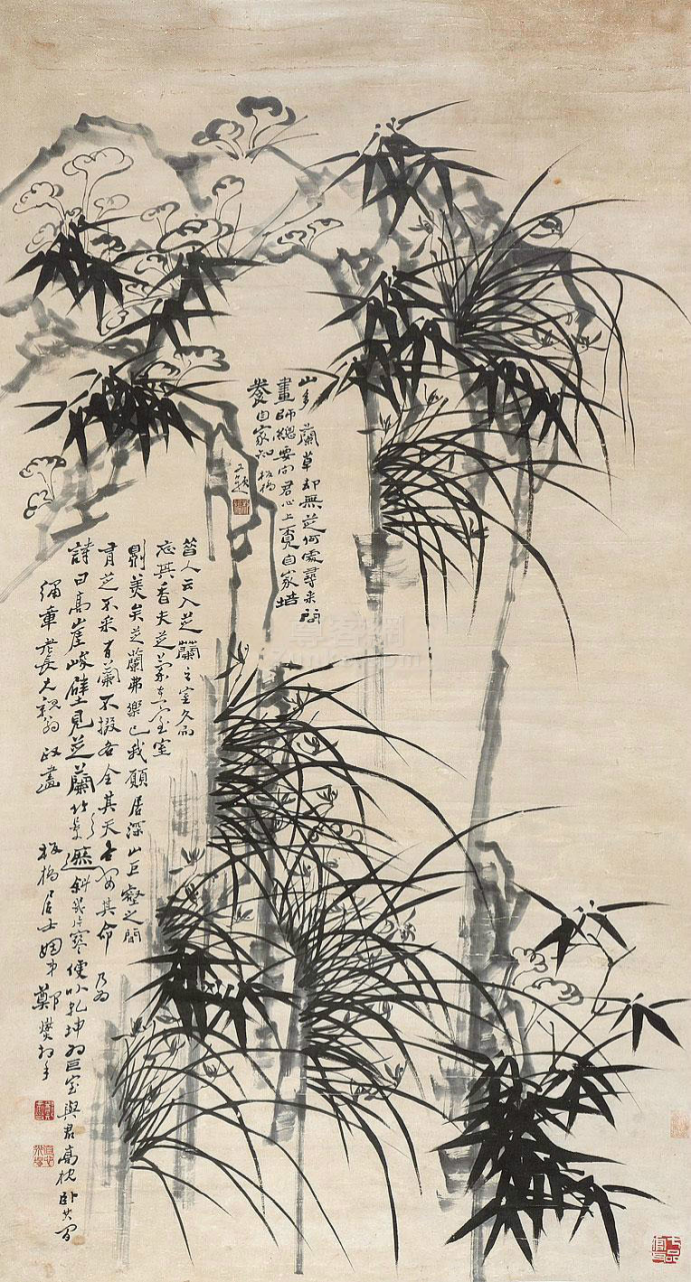 山多蘭草却無芝何處尋來問
畫師總要向君心上覓自家培
養自家知 板橋
又題
昔人云入芝蘭之室久而
忘其香夫芝蘭入室室
則美矣芝蘭弗樂也我願居深山巨壑之間
有芝不采有蘭不掇各全其天各安其命 乃為
詩曰高崖峻壁見芝蘭竹影遮斜幾片寒便以乾坤為巨室與君高枕臥其間
老長兄親翁政畫 板橋居士姻弟鄭燮拜手
七品官耳